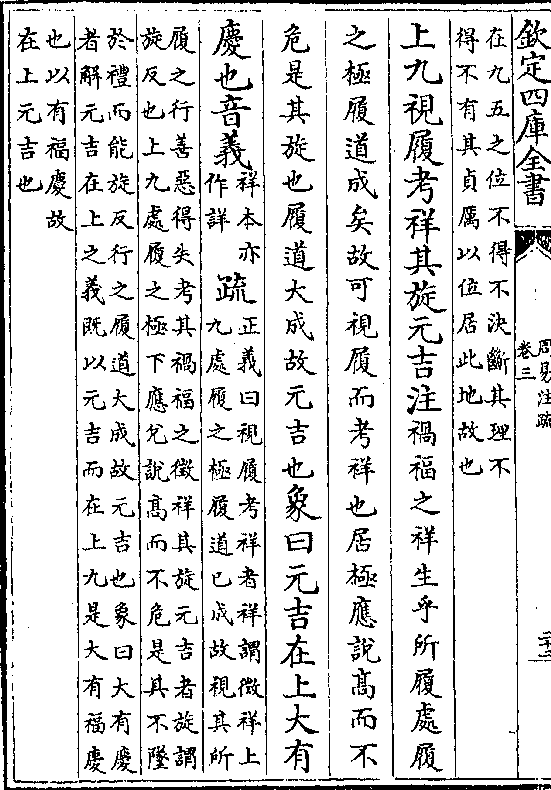 欽定四庫全書
周易注疏
卷三
二十三
在九五之位不得不決斷其理不
得不有其貞厲以位居此地故也
上九視履考祥其旋元吉注禍福之祥生乎所履處履
之極履道成矣故可視履而考祥也居極應說髙而不
危是其旋也履道大成故元吉也象曰元吉在上大有
慶也音義祥本亦
作詳
疏正義曰視履考祥者祥謂徵祥上
九處履之極履道已成故視其所
履之行善惡得失考其禍福之徵祥其旋元吉者旋謂
旋反也上九處履之極下應兌說髙而不危是其不墜
於禮而能旋反行之履道大成故元吉也象曰大有慶
者解元吉在上之義既以元吉而在上九是大有福慶
也以有福慶故
在上元吉也